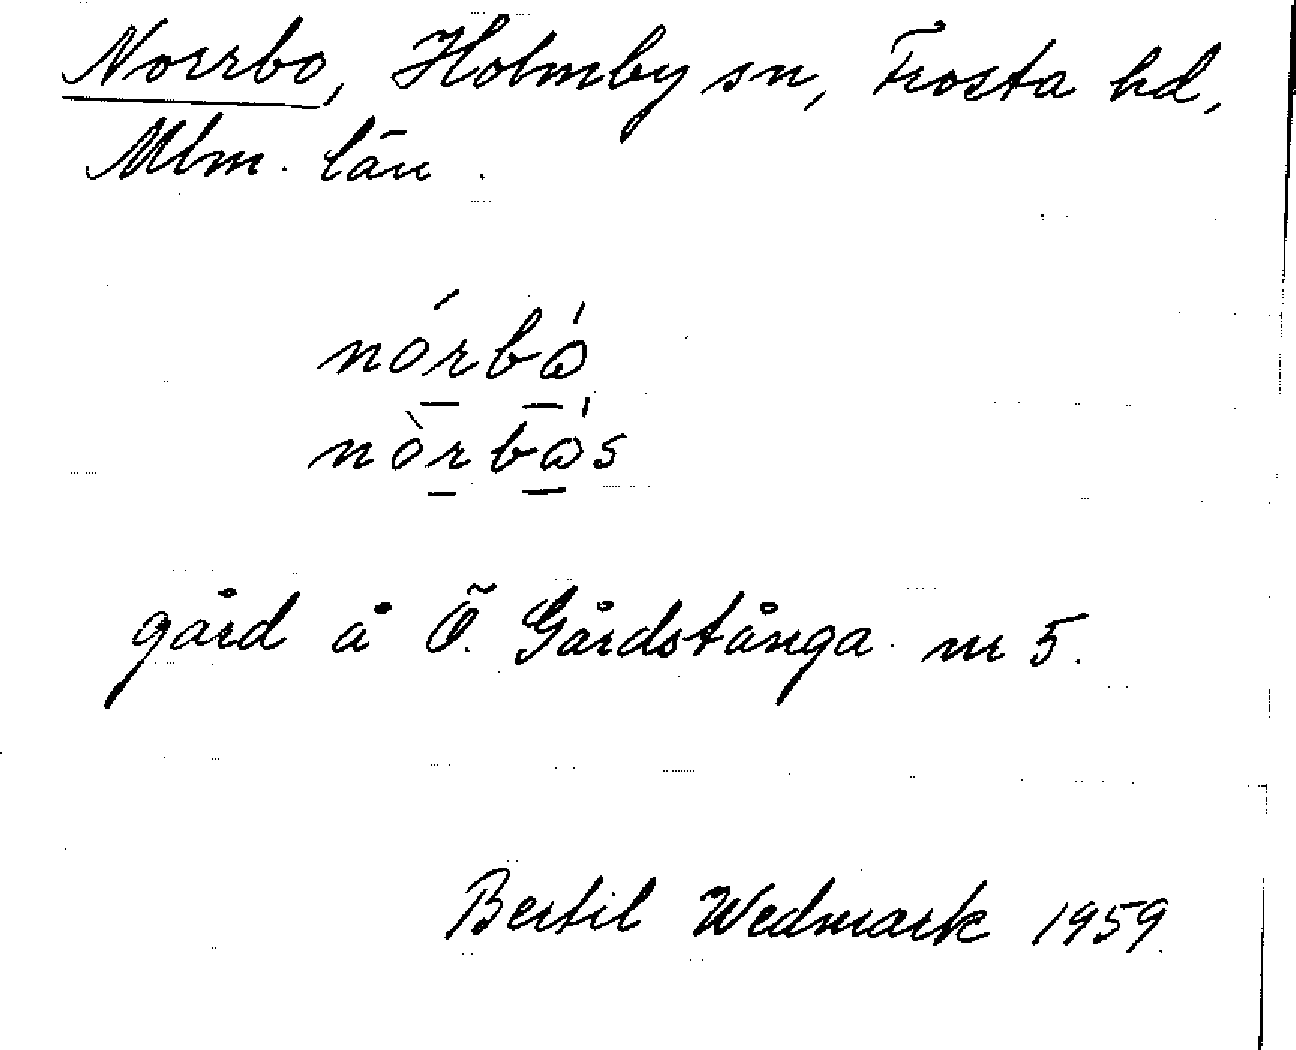 Norrbo, Holmby sn, Frosta hd,
Mlm. län.
nórbó
nòrbós
gård å Ö. Gårdstånga nr 5.
Bertil Wedmark 1959.